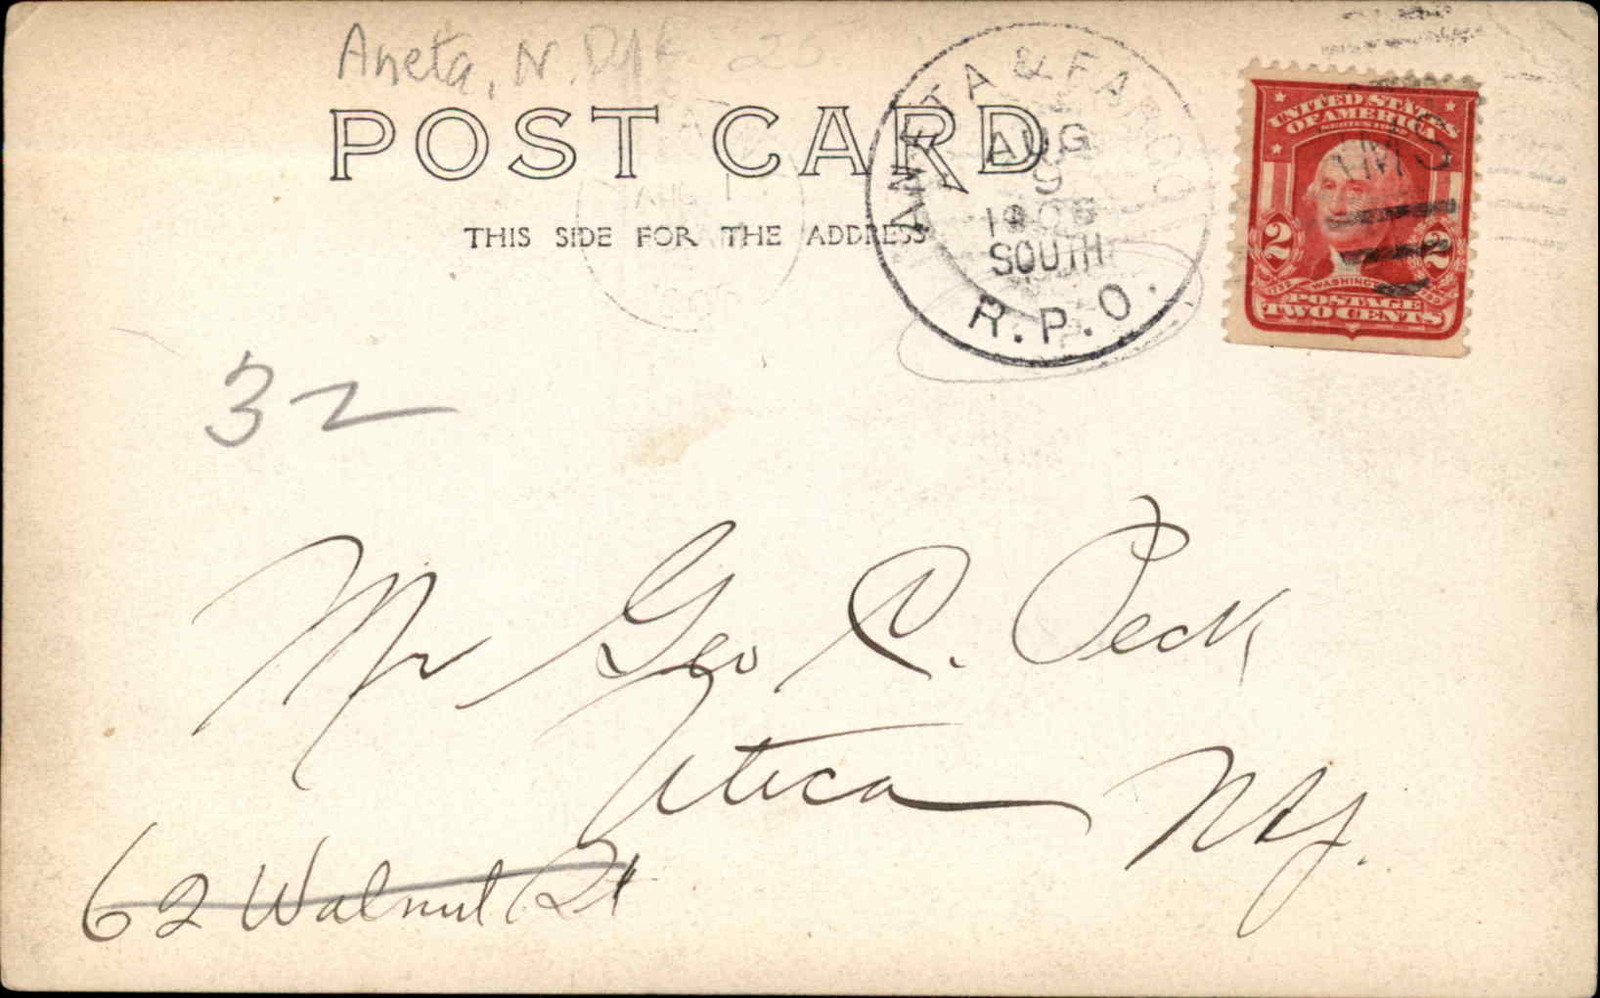 Aneta, N. Dak. 25
POST CARD
THIS SIDE FOR THE ADDRESS
ANETA & FARGO
AUG
9
1906
SOUTH
R.P.O.
RMS
UNITED STATES
OF AMERICA
SERIES 1902
2 2
1732 WASHINGTON 1799
POSTAGE
TWO CENTS
32
Mr Geo C. Peck,
Utica NY.
62 Walnut St